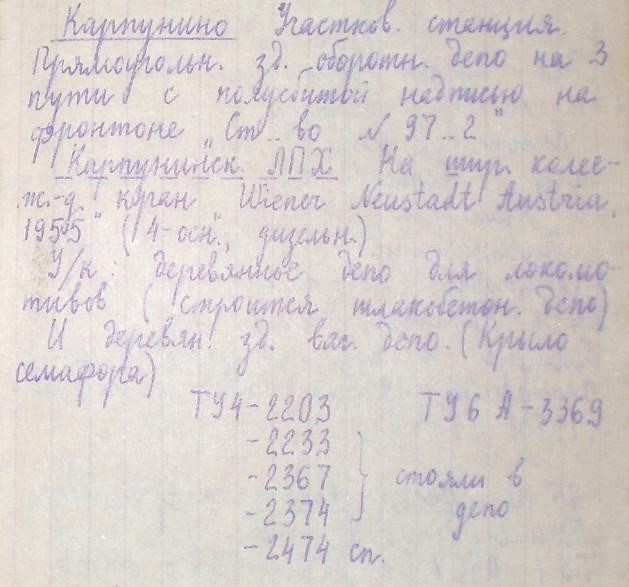 Карпунино Участков. станция.
Прямоугольн. зд. оборотн. депо на 3
пути с полусбитой надписью на
фронтоне „Ст... во № 97..2"
Карпунинск. ЛПХ На шир. колее-
ж.-д. кран „Wiener Neustadt Austria,
1955" (4-осн., дизельн.)
У/к: деревянное депо для локомо-
тивов (строится шлакобетон. депо)
И деревян. зд. ваг. депо. (Крыло
семафора)
ТУ4-2203 ТУ6А-3369
-2233
-2367 } стояли в
-2374 депо
-2474 сп.